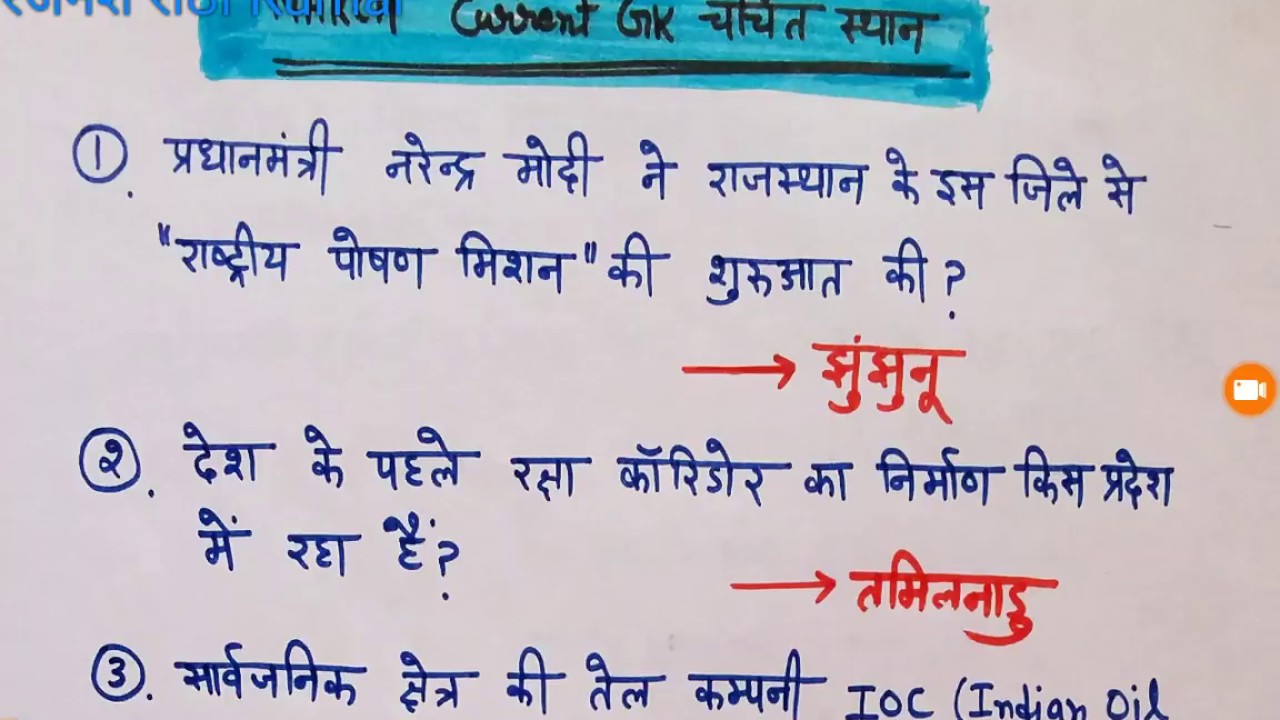 Current GK चर्चित स्थान
① प्रधानमंत्री नरेन्द्र मोदी ने राजस्थान के इस जिले से
"राष्ट्रीय पोषण मिशन" की शुरुआत की?
→ झुंझुनू
② देश के पहले रक्षा कॉरिडोर का निर्माण किस प्रदेश
में रहा हैं?
→ तमिलनाडु
③ सार्वजनिक क्षेत्र की तेल कम्पनी IOC (Indian Oil